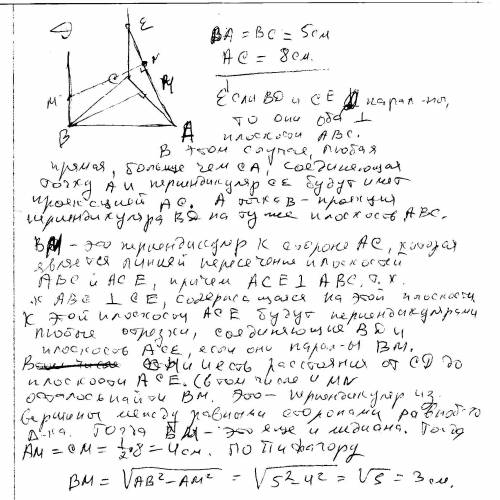 D
E
N
M
C
M
B
A
BA = BC = 5см
AC = 8см.
Если BD и CE парал-ны,
то они оба ⊥
плоскости ABC.
В этом случае, любая
прямая, больше чем CA, соединяющая
точку A и перпендикуляр CE будут имет
проекцией AC. А точка B - проекция
перпендикуляра BD на ту же плоскость ABC.
BM - это перпендикуляр к стороне AC, которая
является линией пересечения плоскостей
ABC и ACE, причем ACE ⊥ ABC, т.к.
к ABC ⊥ CE, содержащаяся на этой плоскости
К этой плоскости ACE будут перпендикулярами
любые отрезки, соединяющие BD и
плоскость ACE, если они парал-ны BM.
и есть расстояния от CD до
плоскости ACE. (в том числе и MN
осталось найти BM. Это - перпендикуляр из
вершины между равными сторонами равноб-го
Δ-ка. Тогда BM - это еще и медиана. Тогда
AM = CM = 1/2·8 = 4см. По Пифагору
BM = √AB² - AM² = √5² 4² = √5 = 3см.